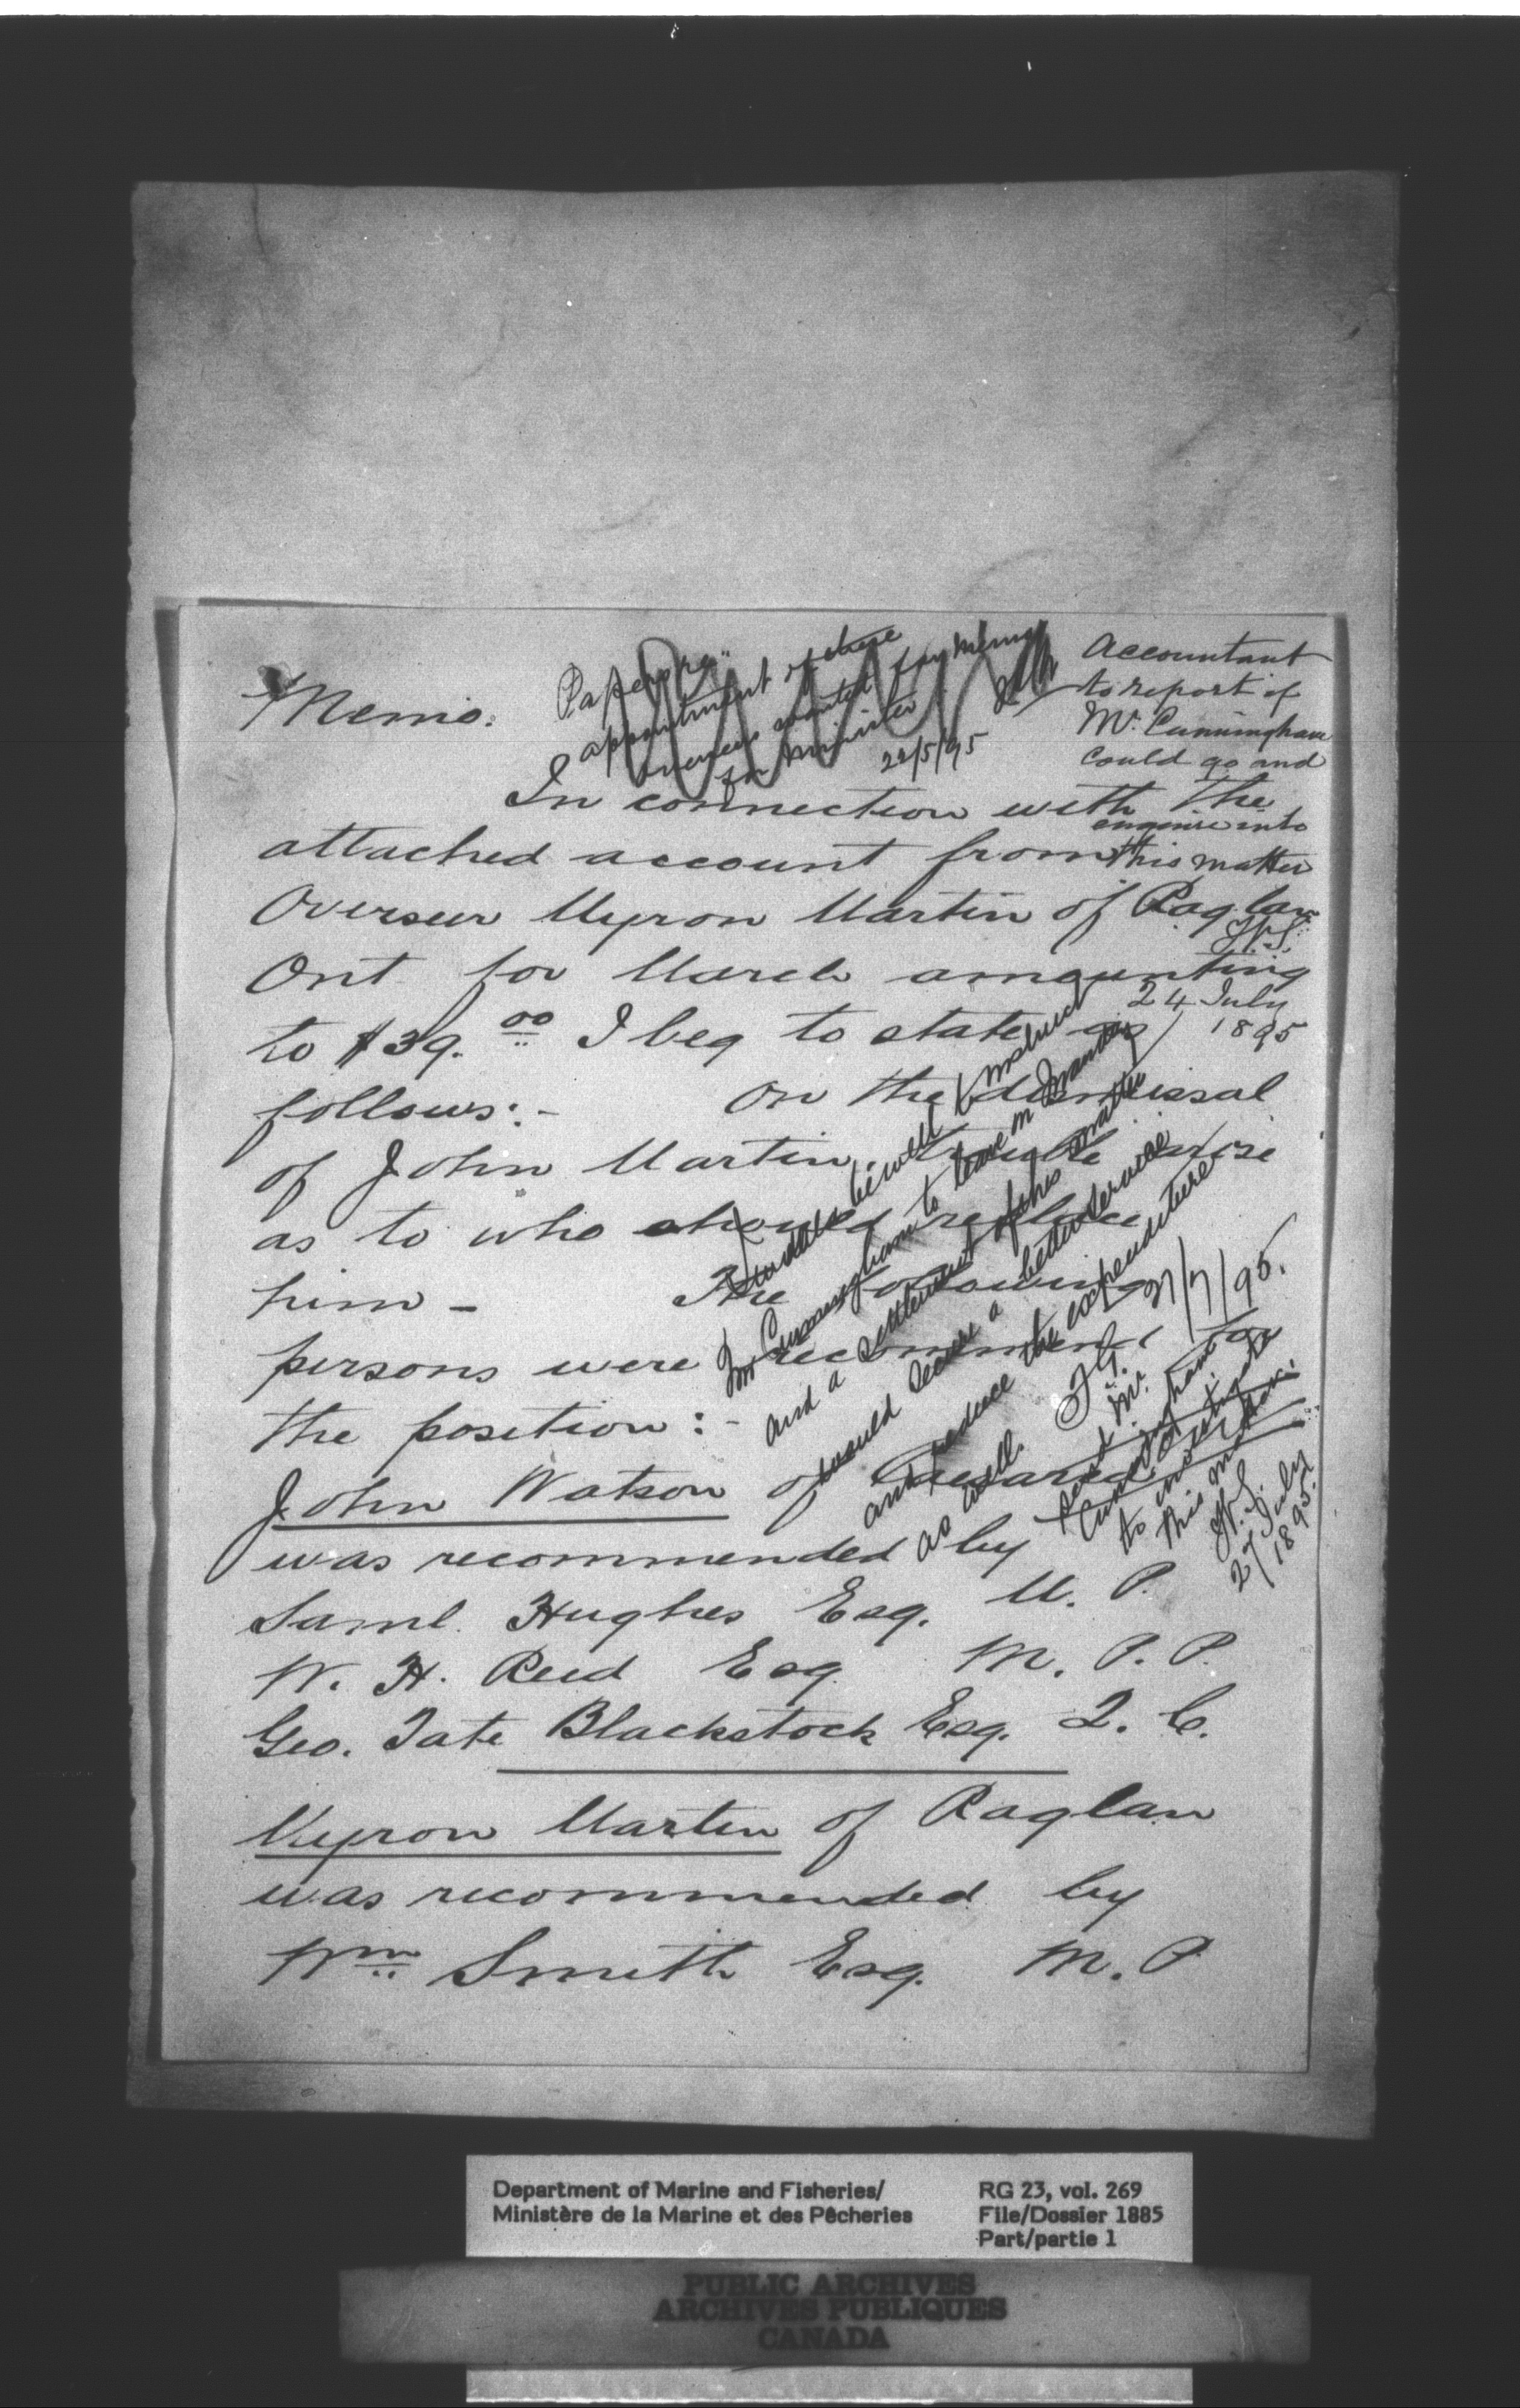 Memo.
Papers re
appointment of these
overseers wanted for Memo
for Minister
22/5/95
Accountant
to report if
Mr. Cunningham
could go and
enquire into
this matter
W.S.
24 July
1895
In connection with the
attached account from
Overseer Myron Martin of Raglan
Ont for March amounting
to $39.00 I beg to state as
follows:-
On the dismissal
of John Martin, trouble arose
as to who should replace
him -
The following
persons were recommend for
the position:-
John Watson of Caesarea
was recommended by
Saml. Hughes Esq. M. P.
W. H. Reid Esq. M. P. P.
Geo. Tate Blackstock Esq. Q. C.
Myron Martin of Raglan
was recommended by
Wm Smith Esq. M. P
It would be well to instruct
Mr Cunningham to leave on Tuesday
and a settlement of this matter
would secure a better service
and reduce the expenditure
as well. F.G. 27/7/95.
Send Mr.
Cunningham
to investigate
this matter.
W.S.
27 July
1895.
Department of Marine and Fisheries/
Ministère de la Marine et des Pêcheries
RG 23, vol. 269
File/Dossier 1885
Part/partie 1
PUBLIC ARCHIVES
ARCHIVES PUBLIQUES
CANADA